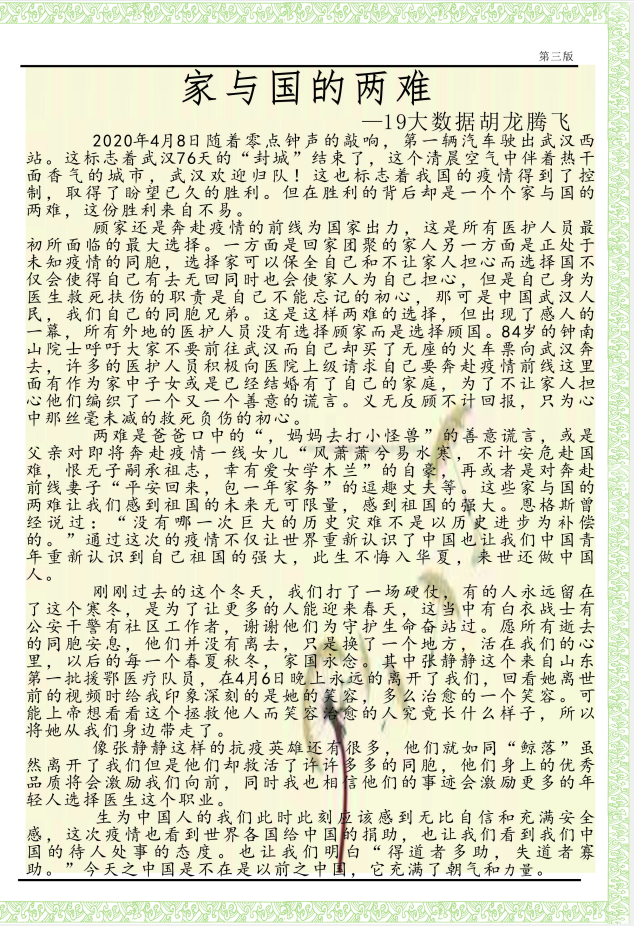 第三版
家与国的两难
—19大数据胡龙腾飞
2020年4月8日随着零点钟声的敲响，第一辆汽车驶出武汉西
站。这标志着武汉76天的“封城”结束了，这个清晨空气中伴着热干
面香气的城市，武汉欢迎归队！这也标志着我国的疫情得到了控
制，取得了盼望已久的胜利。但在胜利的背后却是一个个家与国的
两难，这份胜利来自不易。
顾家还是奔赴疫情的前线为国家出力，这是所有医护人员最
初所面临的最大选择。一方面是回家团聚的家人另一方面是正处于
未知疫情的同胞，选择家可以保全自己和不让家人担心而选择国不
仅会使得自己有去无回同时也会使家人为自己担心，但是自己身为
医生救死扶伤的职责是自己不能忘记的初心，那可是中国武汉人
民，我们自己的同胞兄弟。这是这样两难的选择，但出现了感人的
一幕，所有外地的医护人员没有选择顾家而是选择顾国。84岁的钟南
山院士呼吁大家不要前往武汉而自己却买了无座的火车票向武汉奔
去，许多的医护人员积极向医院上级请求自己要奔赴疫情前线这里
面有作为家中子女或是已经结婚有了自己的家庭，为了不让家人担
心他们编织了一个又一个善意的谎言。义无反顾不计回报，只为心
中那丝毫未减的救死负伤的初心。
两难是爸爸口中的“，妈妈去打小怪兽”的善意谎言，或是
父亲对即将奔赴疫情一线女儿“风萧萧兮易水寒，不计安危赴国
难，恨无子嗣承祖志，幸有爱女学木兰”的自豪，再或者是对奔赴
前线妻子“平安回来，包一年家务”的逗趣丈夫等。这些家与国的
两难让我们感到祖国的未来无可限量，感到祖国的强大。恩格斯曾
经说过：“没有哪一次巨大的历史灾难不是以历史进步为补偿
的。”通过这次的疫情不仅让世界重新认识了中国也让我们中国青
年重新认识到自己祖国的强大，此生不悔入华夏，来世还做中国
人。
刚刚过去的这个冬天，我们打了一场硬仗，有的人永远留在
了这个寒冬，是为了让更多的人能迎来春天，这当中有白衣战士有
公安干警有社区工作者，谢谢他们为守护生命奋站过。愿所有逝去
的同胞安息，他们并没有离去，只是换了一个地方，活在我们的心
里，以后的每一个春夏秋冬，家国永念。其中张静静这个来自山东
第一批援鄂医疗队员，在4月6日晚上永远的离开了我们，回看她离世
前的视频时给我印象深刻的是她的笑容，多么治愈的一个笑容。可
能上帝想看看这个拯救他人而笑容治愈的人究竟长什么样子，所以
将她从我们身边带走了。
像张静静这样的抗疫英雄还有很多，他们就如同“鲸落”虽
然离开了我们但是他们却救活了许许多多的同胞，他们身上的优秀
品质将会激励我们向前，同时我也相信他们的事迹会激励更多的年
轻人选择医生这个职业。
生为中国人的我们此时此刻应该感到无比自信和充满安全
感，这次疫情也看到世界各国给中国的捐助，也让我们看到我们中
国的待人处事的态度。也让我们明白“得道者多助，失道者寡
助。”今天之中国是不在是以前之中国，它充满了朝气和力量。